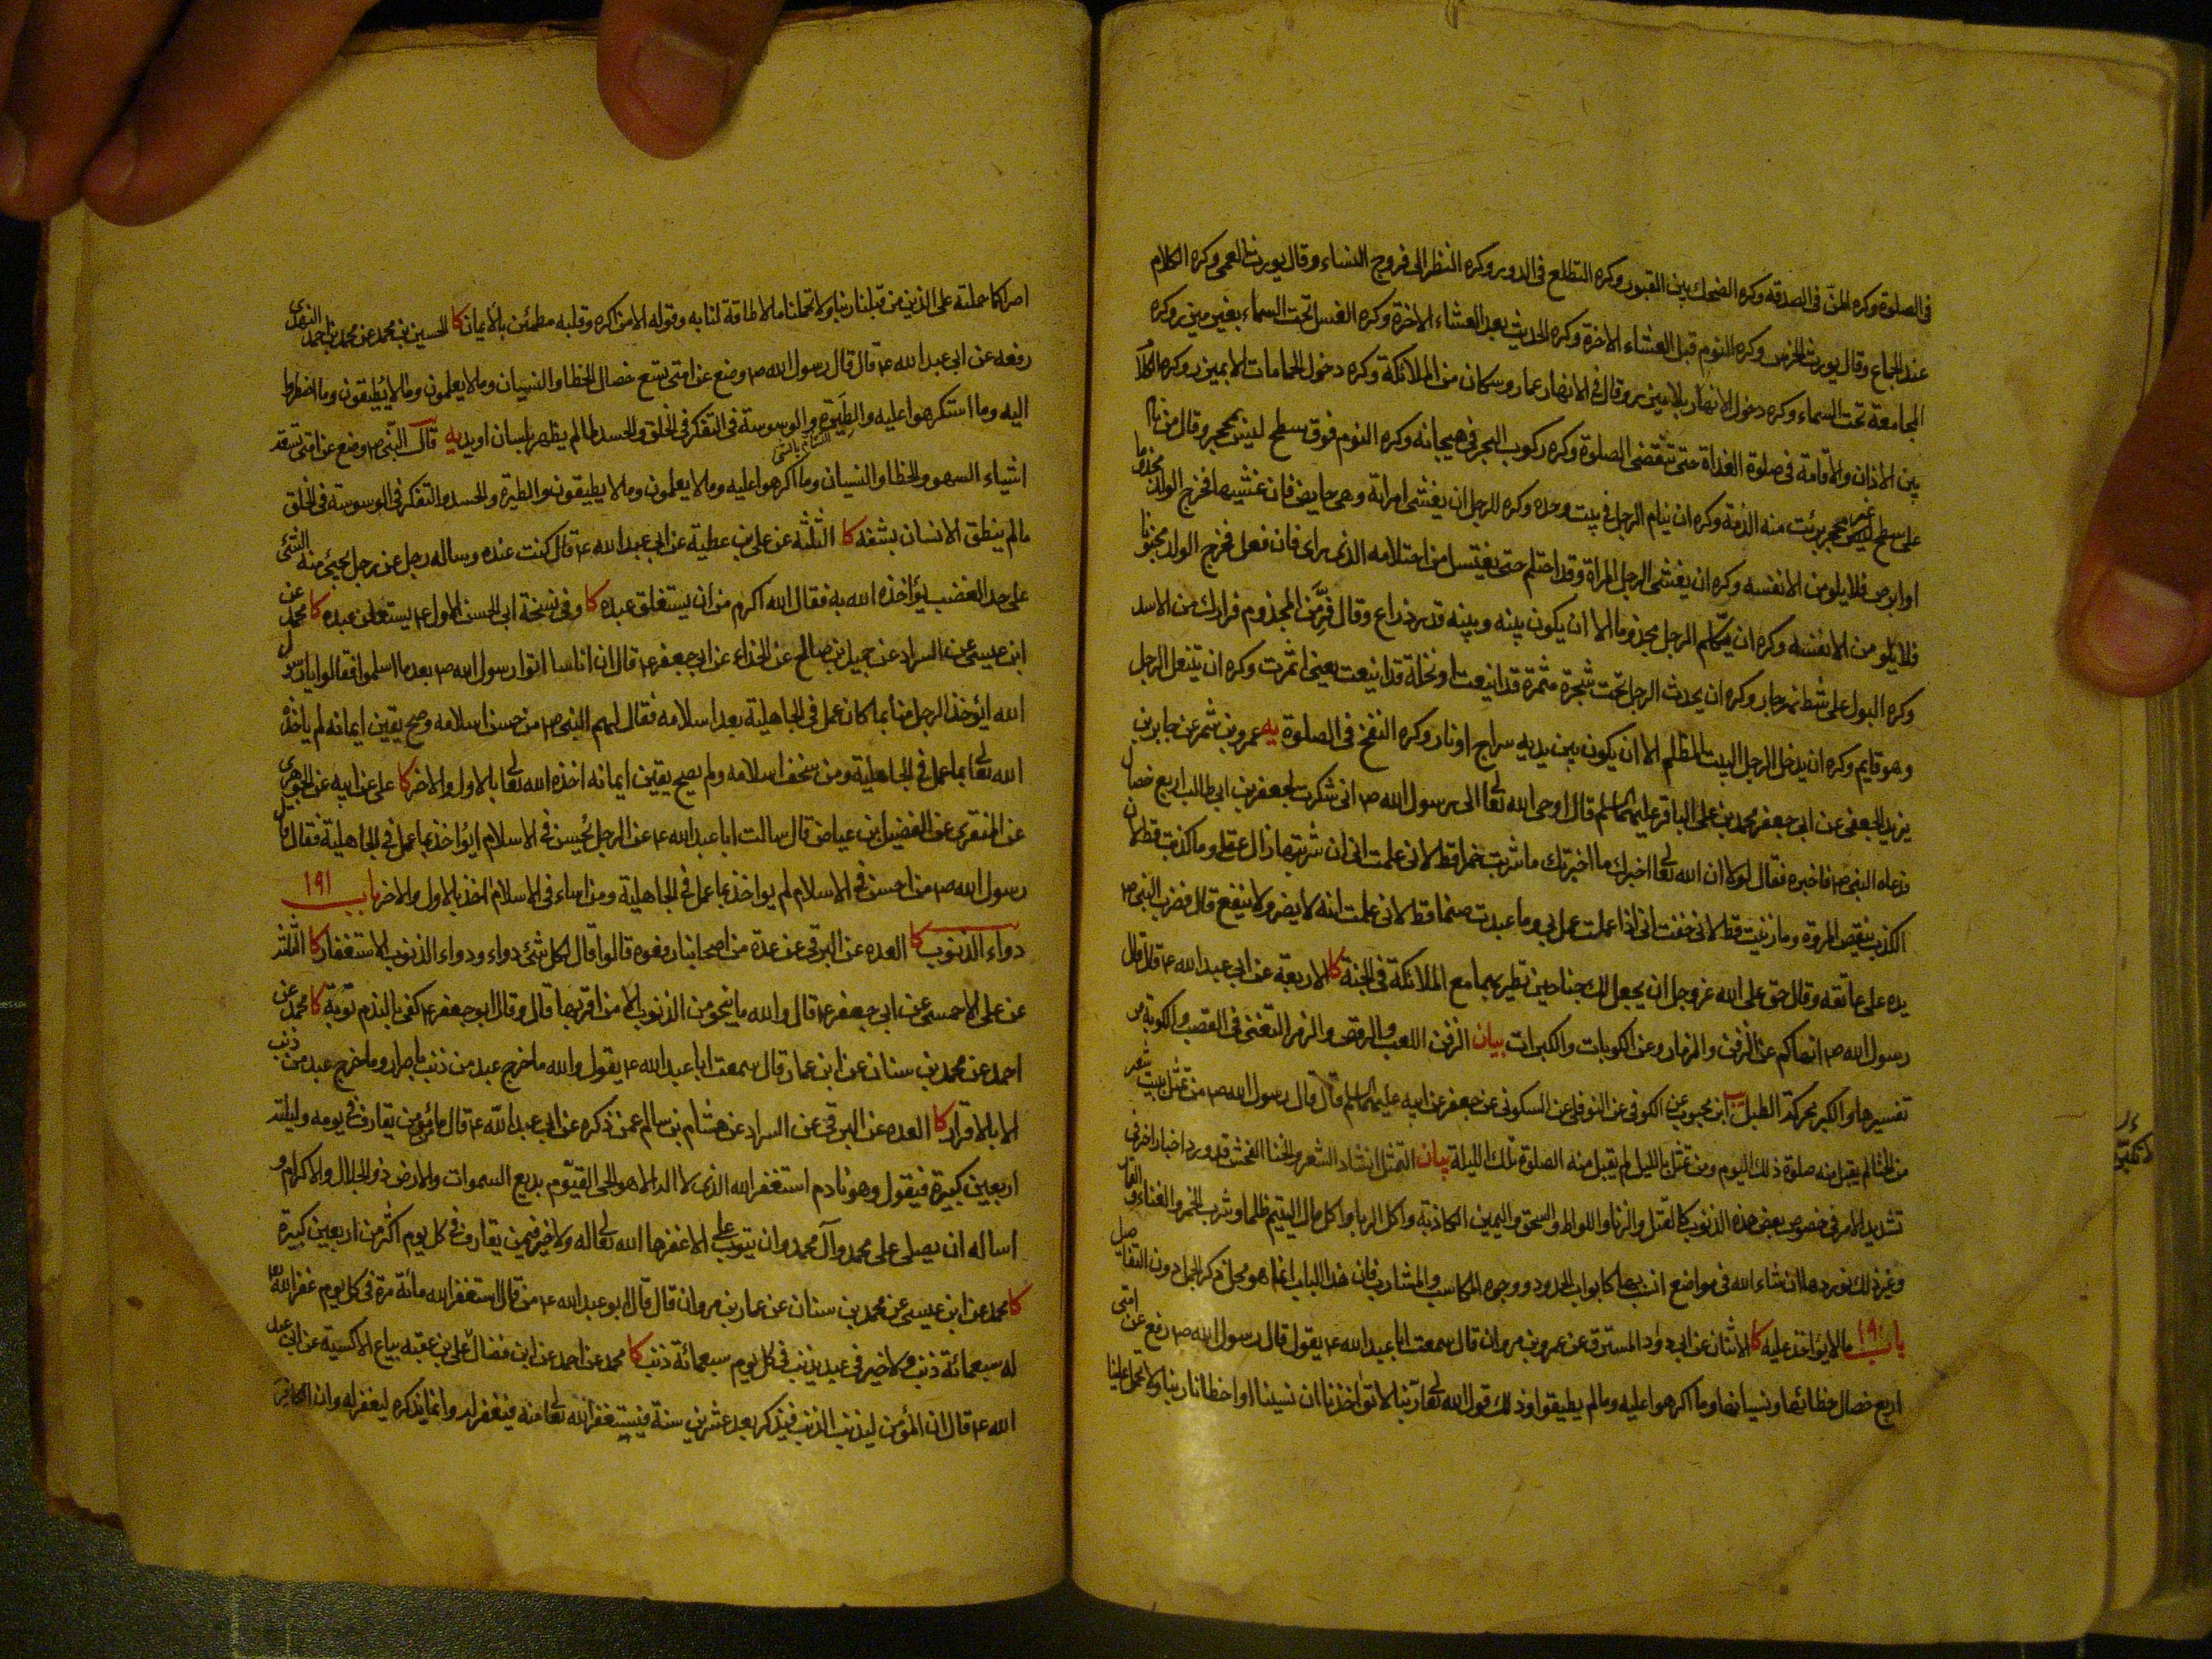 في الصلوة وكره المنّ في الصدقه وكره الضحك بين القبور وكره التطلع في الدور وكره النظر الى فروج النساء وقال يورث العمى وكره الكلام
عند الجماع وقال يورث الخرس وكره النوم قبل العشاء الاخرة وكره الحديث بعد العشاء الاخرة وكره الغسل تحت السماء بغير ميزر وكره
المجامعة تحت السماء وكره دخول الانهار بلا ميزر وقال في الانهار عمار وسكان من الملائكة وكره دخول الحمامات الا بميزر وكره الكلام
بين الاذان والاقامة في صلوة الغداة حتى تنقضى الصلوة وكره ركوب البحر في هيجانه وكره النوم فوق سطح ليس بمحجر وقال من نام
على سطح غير محجر برئت منه الذمة وكره ان ينام الرجل في بيت وحده وكره للرجل ان يغشى امراته وهي حايض فان غشيها فخرج الولد مجذوما
او ابرص فلا يلومن الا نفسه وكره ان يغشى الرجل المراة وقد احتلم حتى يغتسل من احتلامه الذي راى فان فعل فخرج الولد مجنونا
فلا يلومن الا نفسه وكره ان يتكلم الرجل مجذوما الا ان يكون بينه وبينه قدر ذراع وقال فِرَّ من المجذوم فرارك من الاسد
وكره البول على شط نهر جار وكره ان يحدث الرجل تحت شجرة مثمرة قد اينعت او نخلة قد اينعت يعنى اثمرت وكره ان يتنعل الرجل
وهو قايم وكره ان يدخل الرجل البيت المظلم الا ان يكون بين يديه سراج او نار وكره النفخ في الصلوة يه عمرو بن شمر عن جابر بن
يزيد الجعفى عن ابي جعفر محمد بن على الباقر عليهما السلم قال اوحى الله تعالى الى رسول الله ص انى شكرت لجعفر بن ابي طالب اربع خصال
فدعاه النبي ص فاخبره فقال لولا ان الله تعالى اخبرك ما اخبرتك ما شربت خمرا قط لانى علمت انى ان شربتها زال عقلى وما كذبت قط لان
الكذب ينقص المروة وما زنيت قط لانى خفت انى اذا عملت عمل بي وما عبدت صنما قط لانى علمت انه لا يضر ولا ينفع قال فضرب النبي ص
يده على عاتقه وقال حق على الله عز وجل ان يجعل لك جناحين تطير بهما مع الملائكة في الجنة كا الاربعة عن ابي عبد الله ع قال قال
رسول الله ص انهاكم عن الزفن والمزمار وعن الكوبات والكبرات بيان الزفن اللعب والرقص والزمر التغنى في القصب والكوبة مر
تفسيرها والكبر محركة الطبل يب ابن محبوب عن الكوفى عن النوفلى عن السكونى عن جعفر عن ابيه عليهما السلم قال قال رسول الله ص من تمثل ببيت شعر
من الخنا لم يقبل منه صلوة ذلك اليوم ومن تمثل بالليل لم يقبل منه الصلوة تلك الليلة بيان التمثل انشاد الشعر والخنا الفحش قد ورد اخبار اخر في
تشديد الامر في خصوص بعض هذه الذنوب كالقتل والزنا واللواط والسحق واليمين الكاذبة واكل الربا واكل مال اليتيم ظلما وشرب الخمر والغناء والقمار
وغير ذلك نوردها ان شاء الله في مواضع انسب بها كابواب الحدود ووجوه المكاسب والمشارب فان هذا الباب انما هو محل ذكر الجمل دون التفاصيل
باب ١٩٠ ما لا يؤاخذ عليه كا الاثنان عن ابي داود المسترق عن عمرو بن مروان قال سمعت ابا عبد الله ع يقول قال رسول الله ص رفع عن امتى
اربع خصال خطائها ونسيانها وما اكرهوا عليه وما لم يطيقوا وذلك قول الله تعالى ربنا لا تؤاخذنا ان نسينا او اخطانا ربنا ولا تحمل علينا
اصرا كما حملته على الذين من قبلنا ربنا ولا تحملنا ما لا طاقة لنا به وقوله الا من اكره وقلبه مطمئن بالايمان كا الحسين بن محمد عن محمد بن احمد النهدى
رفعه عن ابي عبد الله ع قال قال رسول الله ص وضع عن امتى تسع خصال الخطا والنسيان وما لا يعلمون وما لا يطيقون وما اضطروا
اليه وما استكرهوا عليه والطيرة والوسوسة في التفكر في الخلق والحسد ما لم يظهر بلسان او يد يه قال النبي ص وضع عن امتى تسعة
اشياء السهو والخطا والنسيان وما اكرهوا عليه وما لا يعلمون وما لا يطيقون والطيرة والحسد والتفكر في الوسوسة في الخلق
ما لم ينطق الانسان بشفه كا الثلثه عن على بن عطية عن ابي عبد الله ع قال كنت عنده وساله رجل عن رجل يجئ منه الشئ
على حد الغضب يؤاخذه الله به فقال الله اكرم من ان يستغلق عبده كا وفي نسخة ابي الحسن الاول ع يستقلق عبده كا محمد عن
ابن عيسى عن السراد عن جميل بن صالح عن الحذاء عن ابي جعفر ع قال ان اناسا اتوا رسول الله ص بعد ما اسلموا فقالوا يا رسول
الله ايؤخذ الرجل منا بما كان عمل في الجاهلية بعد اسلامه فقال لهم النبي ص من حسن اسلامه وصح يقين ايمانه لم ياخذه
الله تعالى بما عمل في الجاهلية ومن سخف اسلامه ولم يصح يقين ايمانه اخذه الله تعالى بالاول والاخر كا على عن ابيه عن الجوهرى
عن المنقرى عن الفضيل بن عياض قال سالت ابا عبد الله ع عن الرجل يُحسن في الاسلام ايؤاخذ بما عمل في الجاهلية فقال قال
رسول الله ص من احسن في الاسلام لم يواخذ بما عمل في الجاهلية ومن اساء في الاسلام اخذ بالاول والاخر باب ١٩١
دواء الذنوب كا العده عن البرقى عن عدة من اصحابنا رفعوه قالوا قال لكل شئ دواء ودواء الذنوب الاستغفار كا الثلثة
عن على الاحمسى عن ابي جعفر ع قال والله ما ينجو من الذنوب الا من اقر بها قال وقال ابو جعفر ع كفى بالندم توبة كا محمد عن
احمد عن محمد بن سنان عن ابن عمار قال سمعت ابا عبد الله ع يقول والله ما خرج عبد من ذنب باصرار وما خرج عبد من ذنب
الا بالاقرار كا العده عن البرقى عن السراد عن هشام بن سالم عمن ذكره عن ابي عبد الله ع قال ما من مؤمن يقارف في يومه وليلته
اربعين كبيرة فيقول وهو نادم استغفر الله الذي لا اله الا هو الحى القيوم بديع السموات والارض ذو الجلال والاكرام و
اساله ان يصلى على محمد وآل محمد وان يتوب على الا غفرها الله تعالى له ولا خير فيمن يقارف في كل يوم اكثر من اربعين كبيرة
كا محمد عن ابن عيسى عن محمد بن سنان عن عمار بن مروان قال قال ابو عبد الله ع من قال استغفر الله مائة مرة في كل يوم غفر الله
له سبعمائة ذنب ولا خير في عبد يذنب في كل يوم سبعمائة ذنب كا محمد عن احمد عن ابن فضال عن على بن عقبه بياع الاكسية عن ابي عبد
الله ع قال ان المؤمن ليذنب الذنب فيذكر بعد عشرين سنة فيستغفر الله تعالى منه فيغفر له وانما يذكره ليغفر له وان الكافر